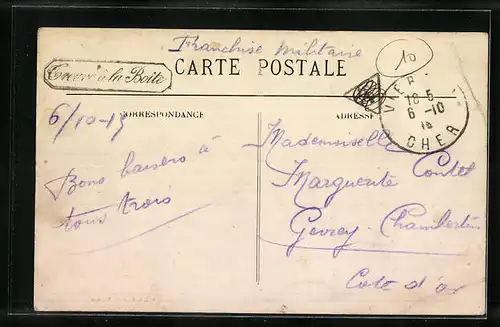 Franchise Militaire
10
Trouvé à la Boîte
CARTE POSTALE
18 5
6 -10
CHER
CORRESPONDANCE
ADRESSE
6/10-15
Mademoiselle
Marguerite Contet
Gevrey-Chambertin
Cote d'or
Bons baisers à
tous trois